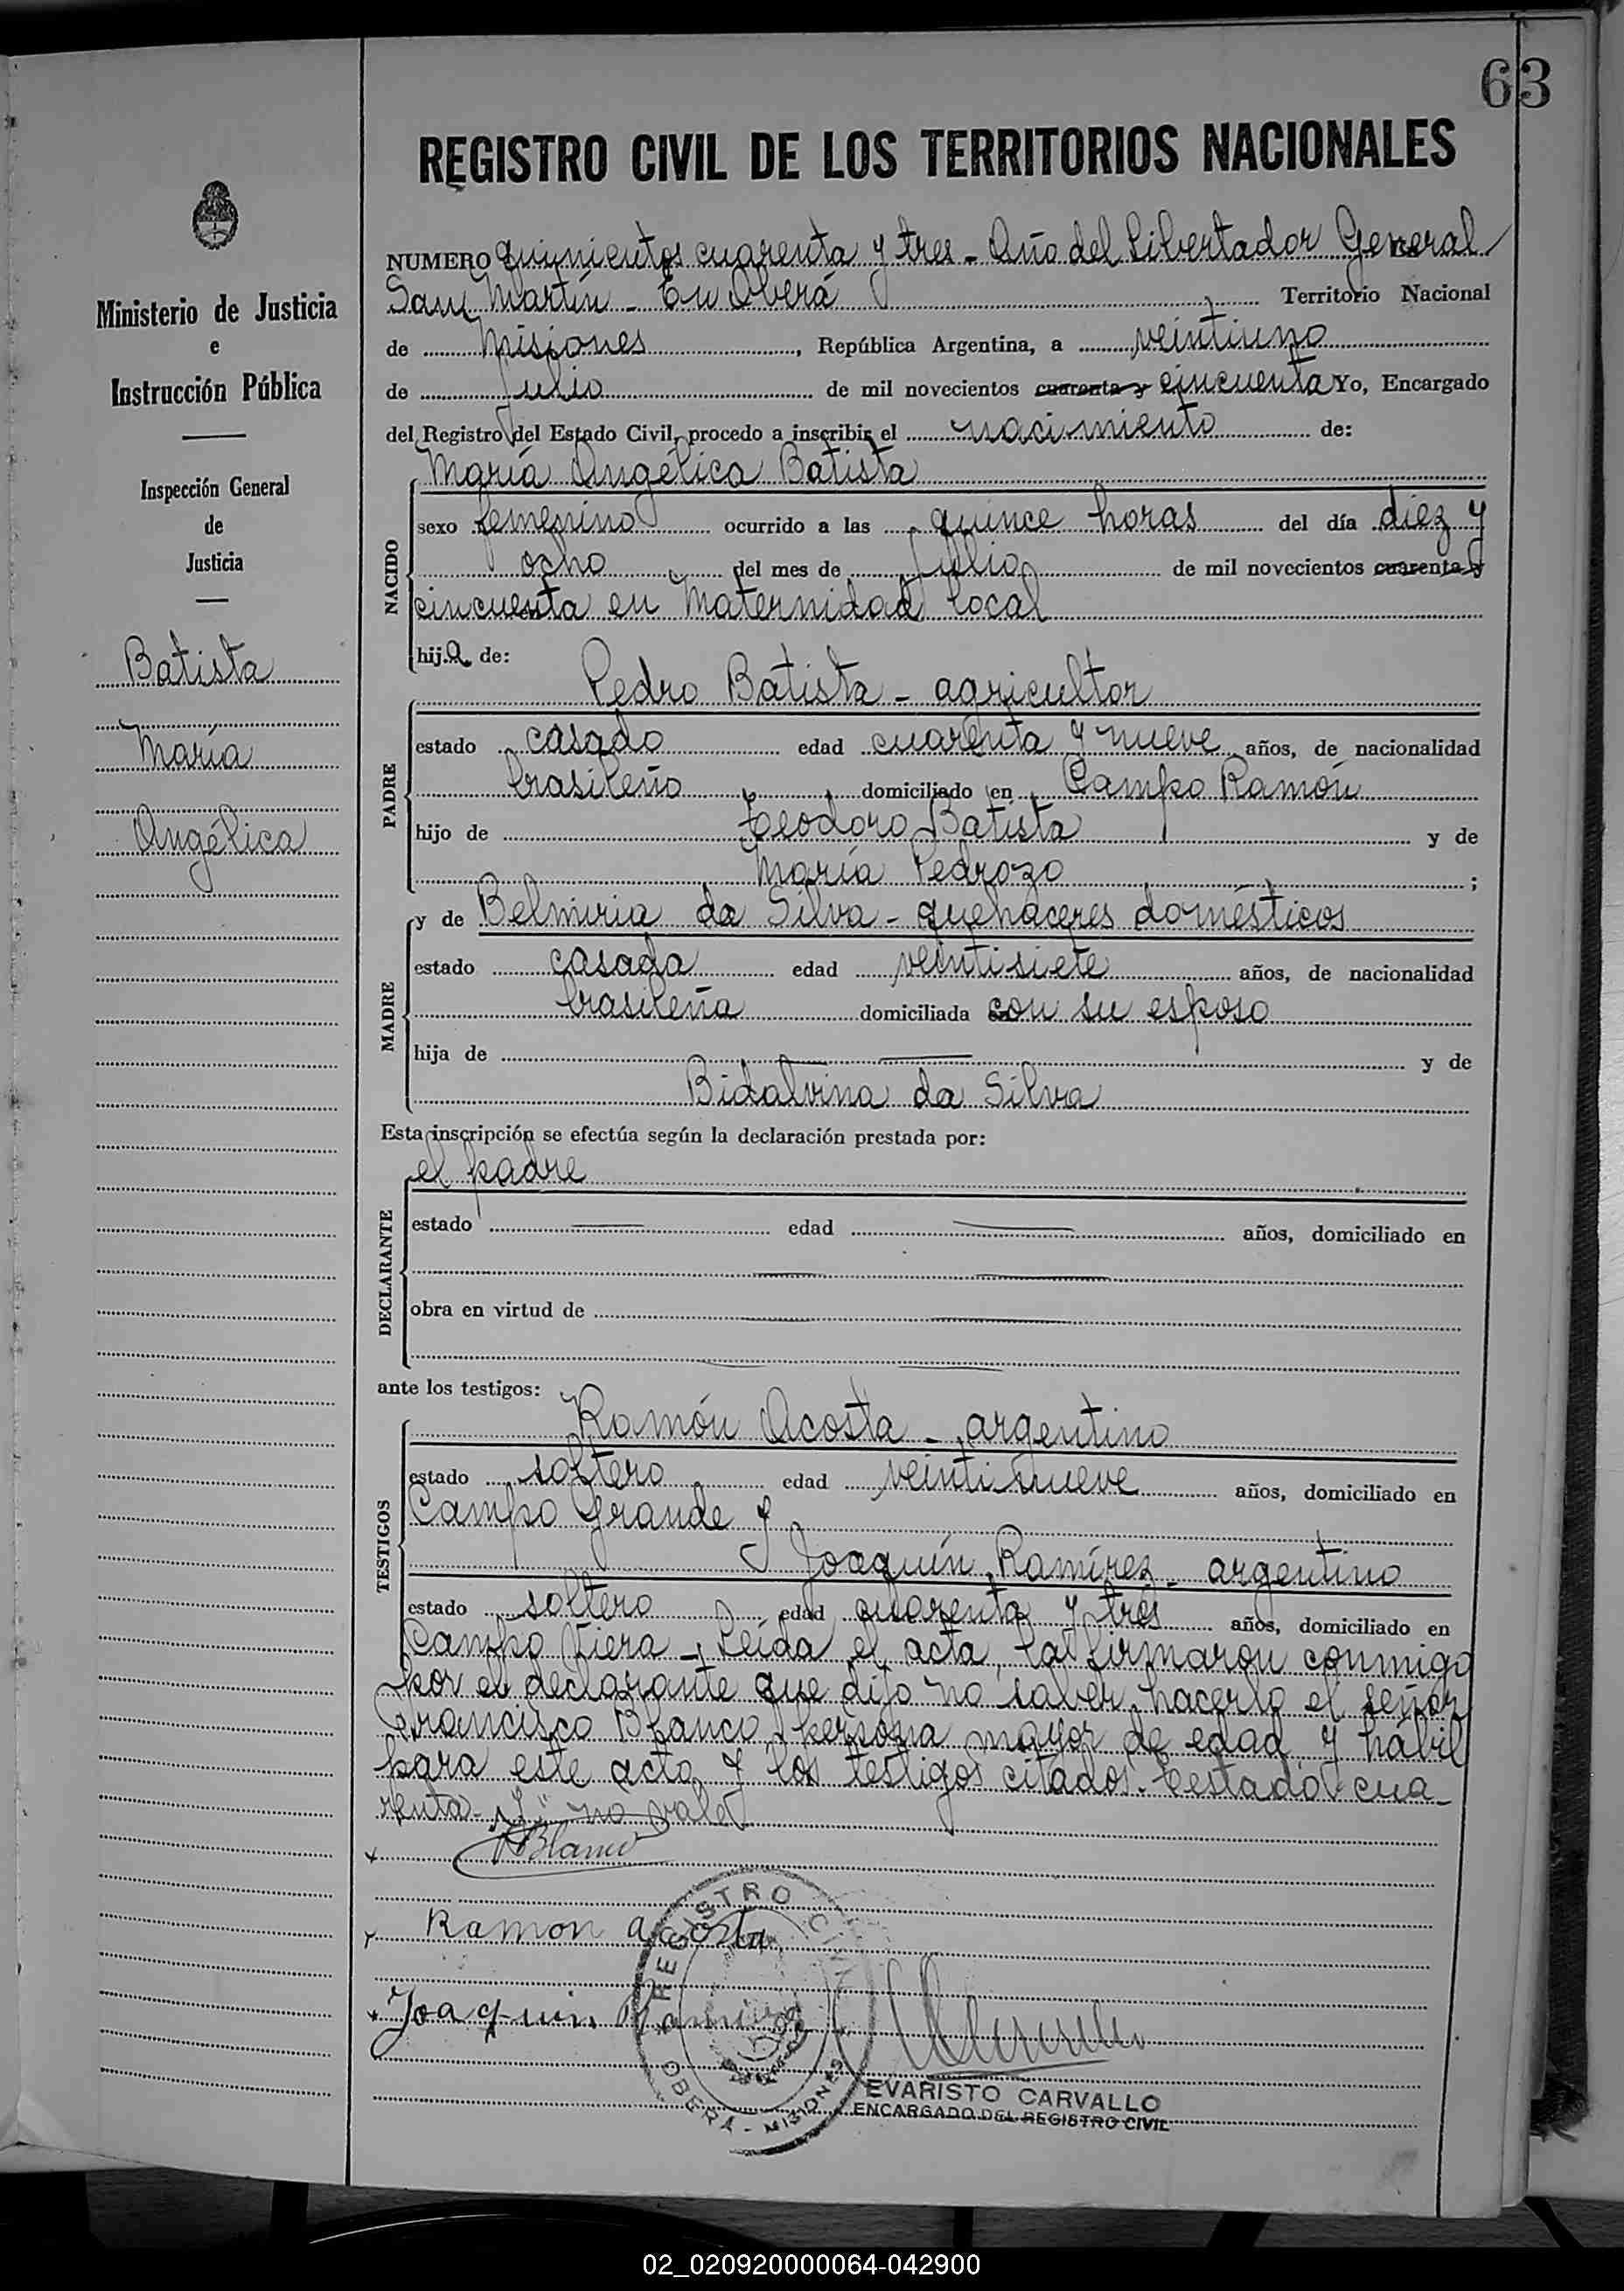 63
REGISTRO CIVIL DE LOS TERRITORIOS NACIONALES
Ministerio de Justicia
e
Instrucción Pública
Inspección General
de
Justicia
Batista
María
Angélica
NUMERO quinientos cuarenta y tres - Año del Libertador General
San Martín - En Oberá Territorio Nacional
de Misiones, República Argentina, a veintiuno
de julio de mil novecientos cuarenta y cincuenta Yo, Encargado
del Registro del Estado Civil, procedo a inscribir el nacimiento de:
María Angélica Batista
NACIDO
sexo femenino ocurrido a las quince horas del día diez y
ocho del mes de julio de mil novecientos cuarenta y
cincuenta en Maternidad local
hija de:
Pedro Batista - agricultor
PADRE
estado casado edad cuarenta y nueve años, de nacionalidad
brasileño domiciliado en Campo Ramón
hijo de Teodoro Batista y de
María Pedrozo ;
y de Belmiria da Silva - quehaceres domésticos
MADRE
estado casada edad veintisiete años, de nacionalidad
brasileña domiciliada con su esposo
hija de — y de
Bidalvina da Silva
Esta inscripción se efectúa según la declaración prestada por:
el padre
DECLARANTE
estado — edad — años, domiciliado en
obra en virtud de
ante los testigos:
Ramón Acosta - argentino
TESTIGOS
estado soltero edad veintinueve años, domiciliado en
Campo Grande y
Joaquín Ramírez - argentino
estado soltero edad cuarenta y tres años, domiciliado en
Campo Viera - Leída el acta, la firmaron conmigo
por el declarante que dijo no saber hacerlo el señor
Francisco Blanco, persona mayor de edad y hábil
para este acto y los testigos citados. Testado "cua-
renta - y" no vale
Blanco
Ramon acosta
Joaquin Ramirez
REGISTRO CIVIL
OBERA - MISIONES
EVARISTO CARVALLO
ENCARGADO DEL REGISTRO CIVIL
02_020920000064-042900